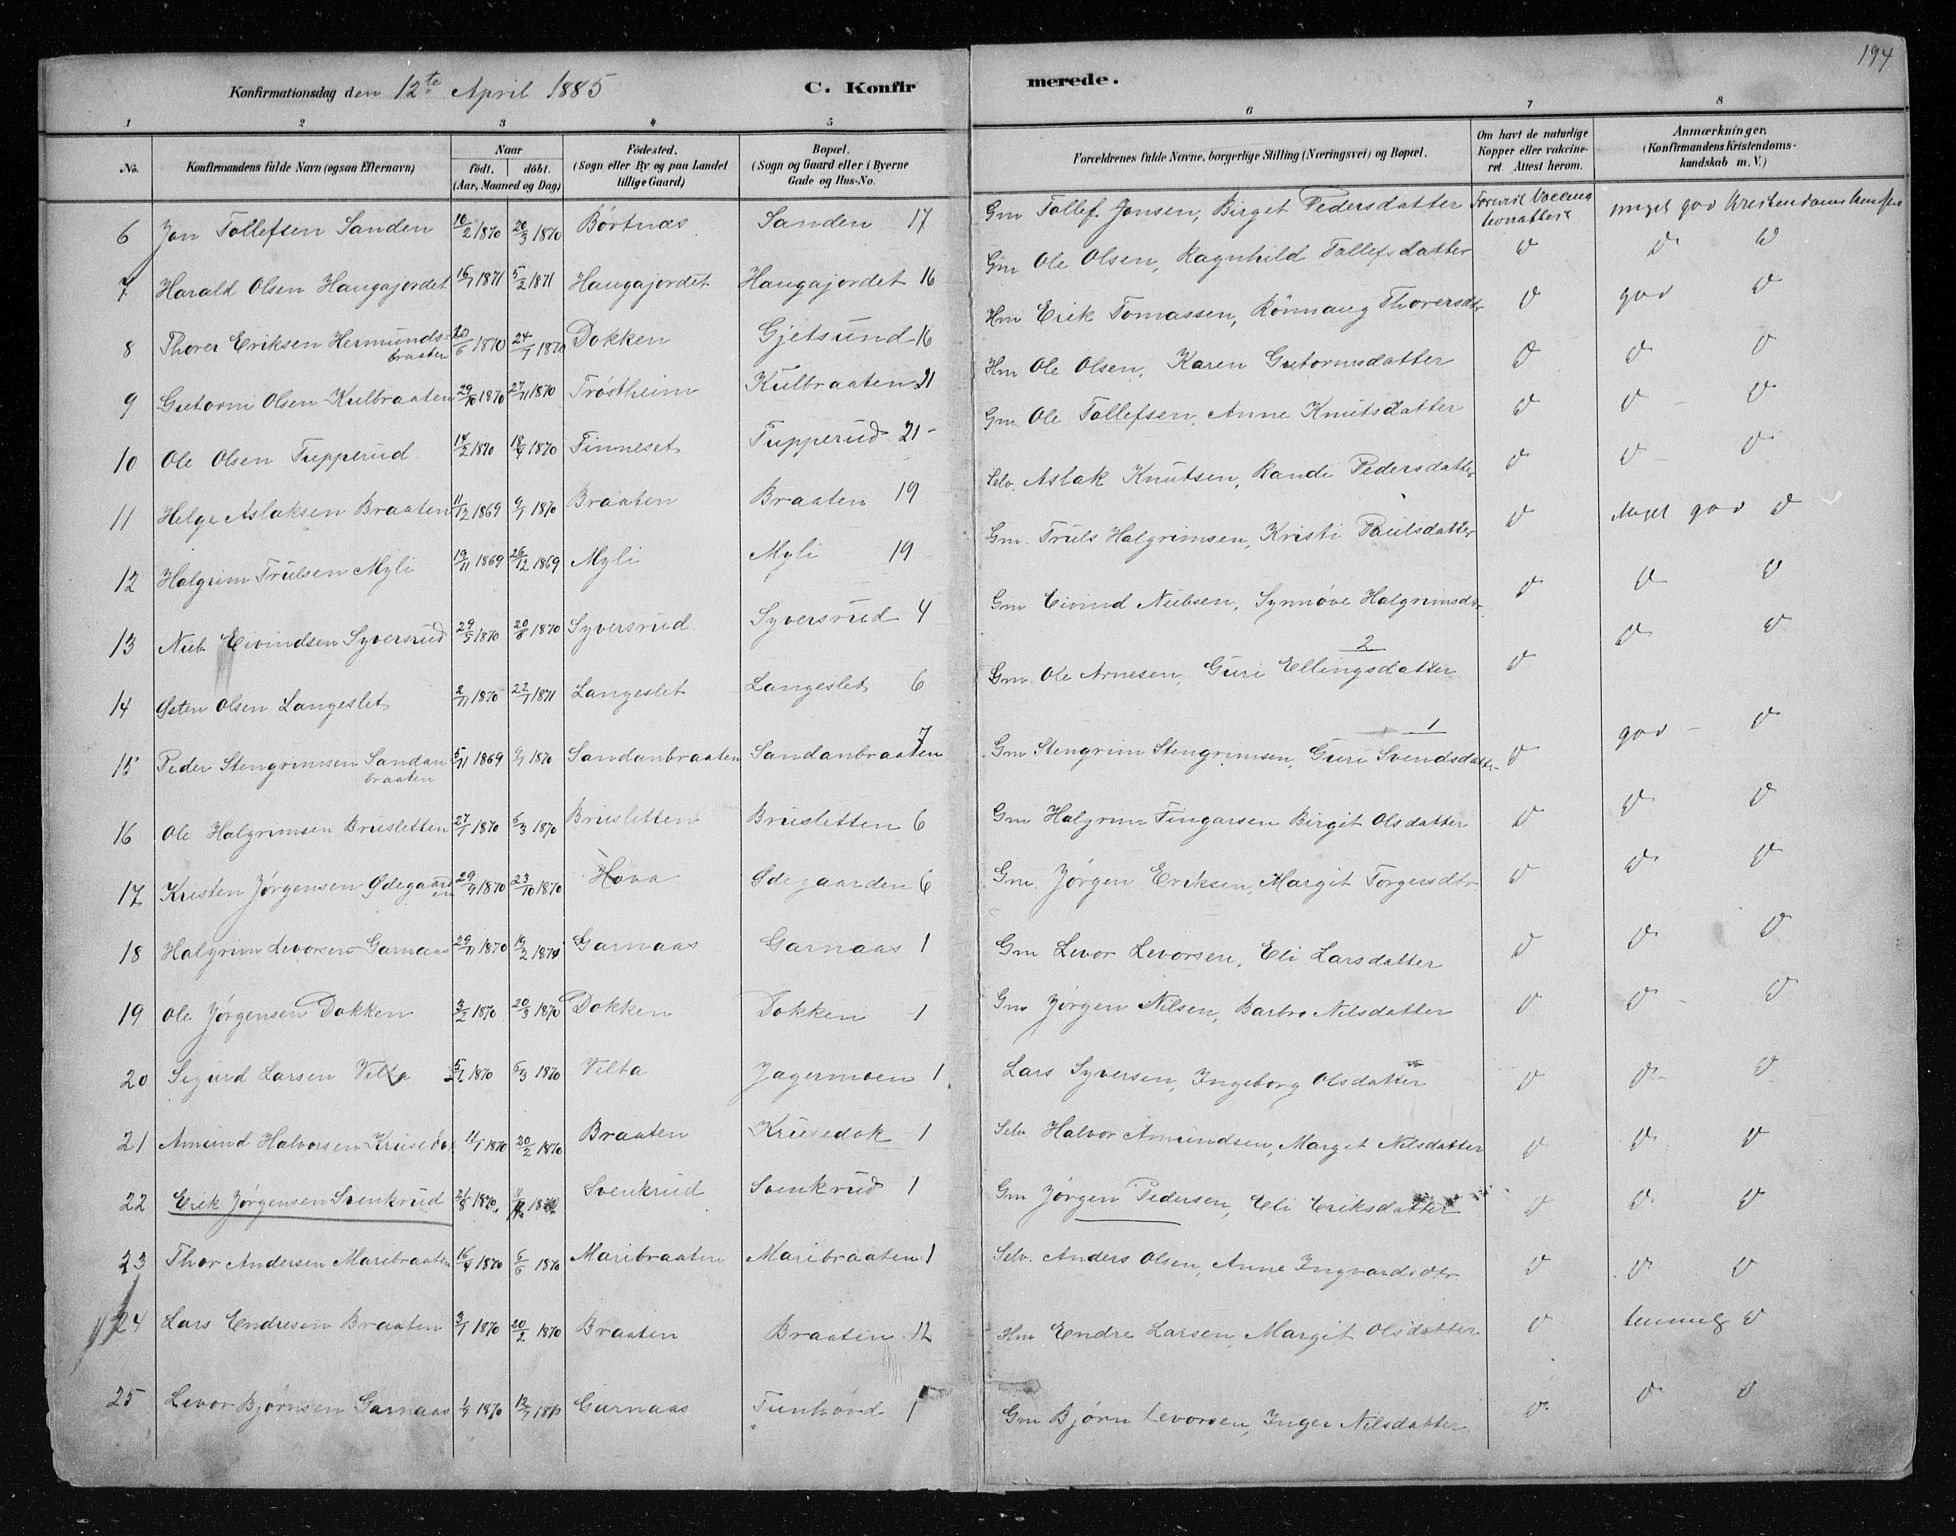 194
Konfirmationsdag den 12te April 1885 C. Konfirmerede.
1 2 3 4 5 6 7 8
No. Konfirmandens fulde Navn (ogsaa Efternavn) Naar født. døbt. (Aar, Maaned og Dag) Fødested. (Sogn eller By og paa Landet tillige Gaard) Bopæl. (Sogn og Gaard eller i Byerne Gade og Hus-No. Forældrenes fulde Navne, borgerlige Stilling (Næringsvei) og Bopæl. Om havt de naturlige Kopper eller vakcineret Attest herom. Anmærkninger. (Konfirmandens Kristendomskundskab m. V.)
6 Jon Tollefsen Sanden 10/2 1870 20/3 1870 Børtnæs Sanden 17 Gm Tollef Jonsen, Birget Pedersdatter meget god
7 Harald Olsen Haugajordet 15/1 1871 5/2 1871 Haugajordet Haugajordet 16 Gm Ole Olsen, Ragnhild Tollefsdatter
8 Thorer Eriksen Hermundsbraaten 20/6 1870 24/7 1870 Dokken Gjetsund 16 Hm Erik Tomassen, Rønnaug Thorersdtr god
9 Gutorm Olsen Kulbraaten 29/10 1870 27/11 1870 Trøstheim Kulbraaten 21 Hm Ole Olsen, Karen Gutormsdatter
10 Ole Olsen Tupperud 14/2 1870 18/4 1870 Finneset Tupperud 21 Gm. Ole Tollefsen, Anne Knutsdatter
11 Helge Aslaksen Braaten 11/12 1869 9/1 1870 Braaten Braaten 19 Selv. Aslak Knutsen, Randi Pedersdatter
12 Halgrim Trulsen Myli 19/11 1869 26/12 1869 Myli Myli 19 Gm. Truls Halgrimsen, Kristi Paulsdatter Meget god
13 Nub Eivindsen Syversrud 29/5 1870 20/8 1870 Syversrud Syversrud 4 Gm Eivind Nubsen, Synnøve Halgrimsdtr
14 Østen Olsen Langeslet 2/11 1870 22/1 1871 Langeslet Langeslet 6 Gm. Ole Arnesen, Guri Ellingsdatter 2
15 Peder Stengrimsen Sandanbraaten 5/11 1869 9/1 1870 Sandanbraaten Sandanbraaten 7 Gm Stengrim Stengrimsen, Guri Svendsdatter 1 god
16 Ole Halgrimsen Brusletten 27/1 1870 6/3 1870 Brusletten Brusletten 6 Gm Halgrim Fingarsen Birgit Olsdatter
17 Kristen Jørgensen Ødegaarden 29/9 1870 23/10 1870 Hova Ødegaarden 6 Gm. Jørgen Eriksen, Margit Torgersdtr
18 Halgrim Levorsen Garnaas 29/11 1870 19/2 187 Garnaas Garnaas 1 Gm Levor Levorsen, Eli Larsdatter
19 Ole Jørgensen Dokken 3/2 1870 20/3 1870 Dokken Dokken 1 Gm Jørgen Nilsen, Barbro Nilsdatter
20 Sigurd Larsen Velta 5/2 1870 6/3 1870 Velta Jagermoen 1 Lars Syversen, Ingeborg Olsdatter
21 Amund Halvorsen Krusedok 11/1 1870 20/2 1870 Braaten Krusedok 1 Selv Halvor Amundsen, Marget Nilsdatter
22 Erik Jørgensen Svenkrud 21/8 1870 Svenkrud Svenkrud 1 Gm Jørgen Pedersen, Eli Eriksdatter
23 Thor Andersen Maribraaten 16/4 1870 6/6 1870 Maribraaten Maribraaten 1 Selv. Anders Olsen, Anne Ingvardsdtr
24 Lars Endresen Braaten 3/1 1870 20/2 1870 Braaten Braaten 12 Hm Endre Larsen, Margit Olsdatter temmelig
25 Levor Bjørnsen Garnaas 1870 1870 Garnaas Tunhovd 1 Gm Bjørn Levorsen, Inger Nilsdatter